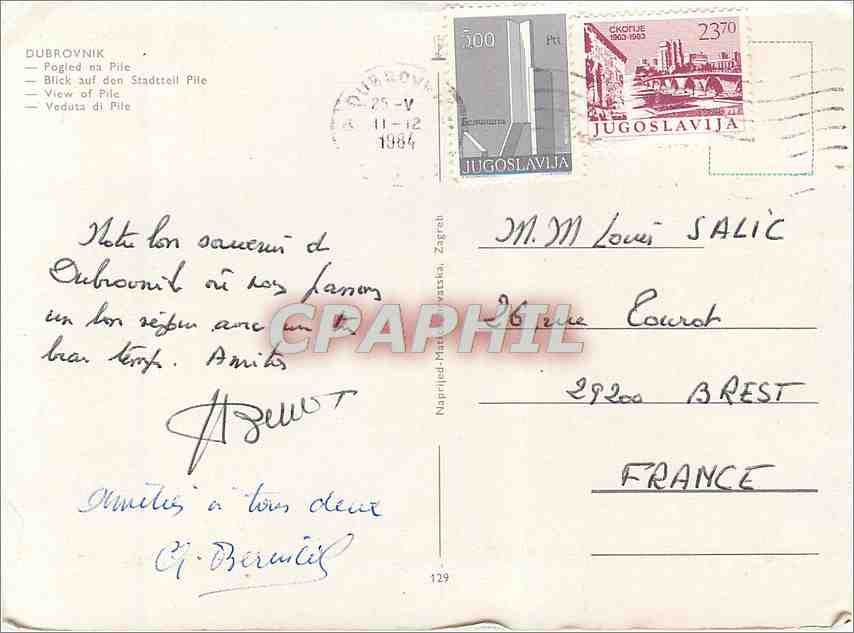 DUBROVNIK
— Pogled na Pile
— Blick auf den Stadtteil Pile
— View of Pile
— Veduta di Pile
DUBROV
25-V
11-12
1984
5.00 Ptt
JUGOSLAVIJA
СКОПЈЕ
1963-1983
23.70
JUGOSLAVIJA
Notre bon souvenir de
Dubrovnik où nous passons
un bon séjour avec un très
beau temps. Amitiés
Amitiés à tous deux
M.M Louis SALIC
26 rue
29200 BREST
FRANCE
Naprijed-Mati Hrvatska, Zagreb
129
CPAPHIL